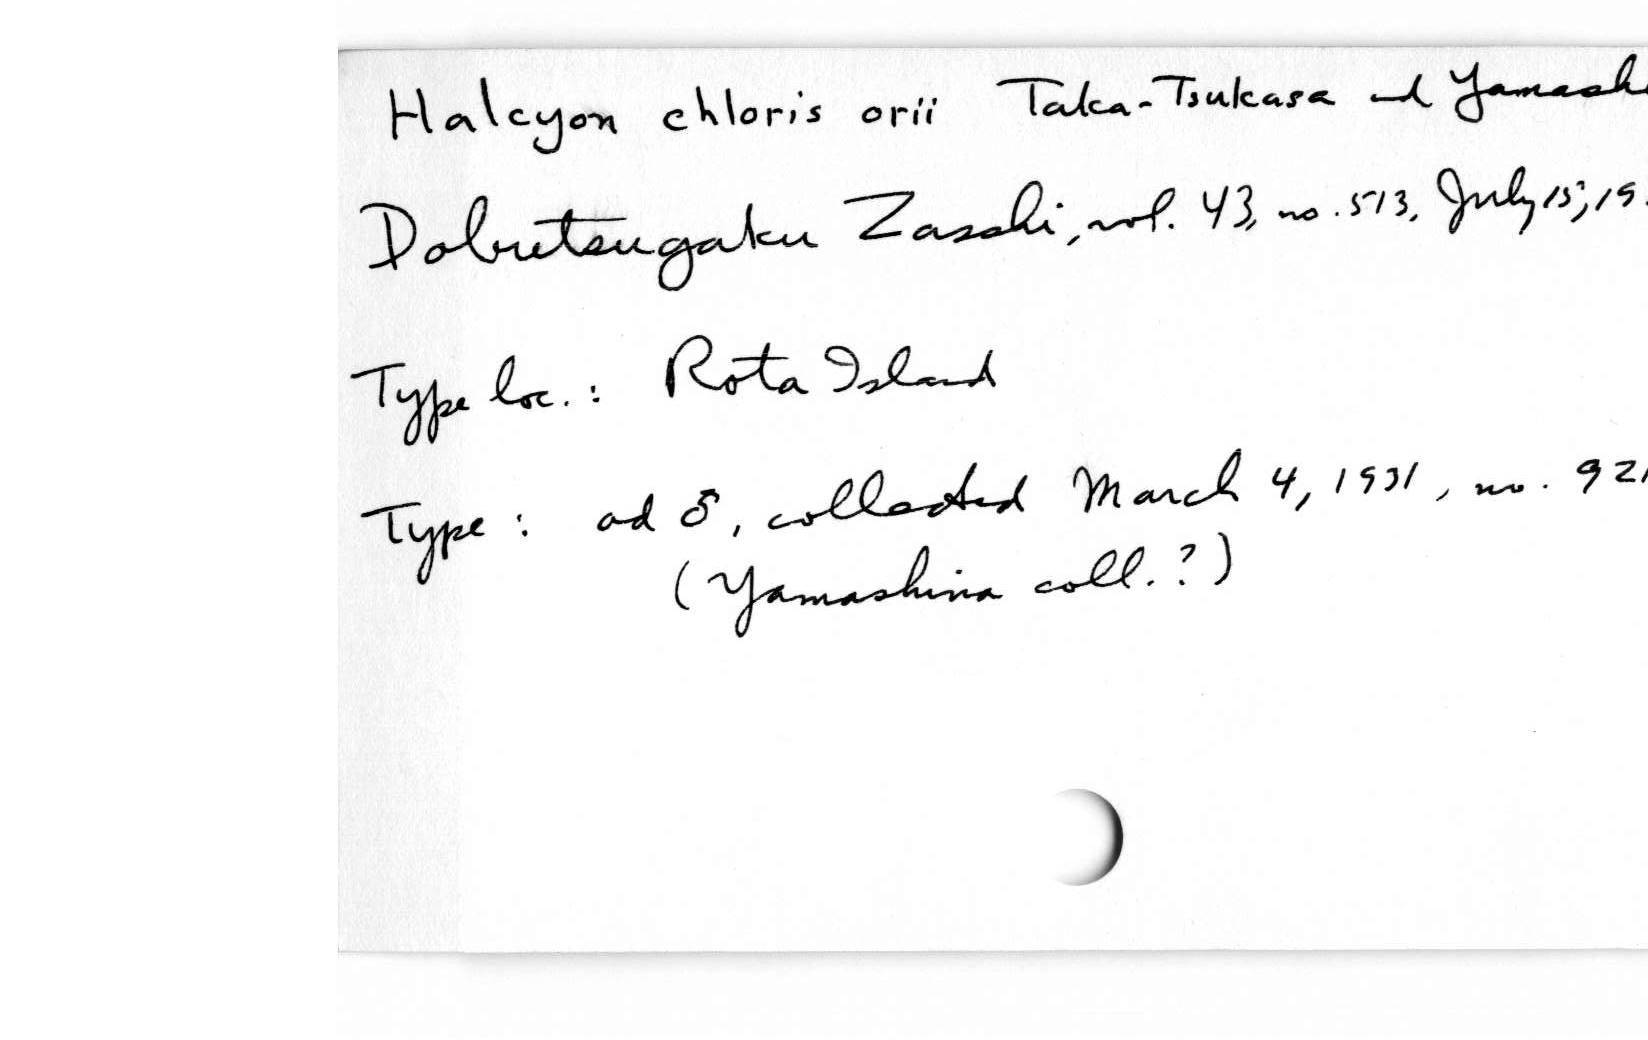 Halcyon chloris orii Taka-Tsukasa and Yamash
Dobutsugaku Zasshi, vol. 43, no. 513, July 15, 19
Type loc.: Rota Island
Type: ad ♂, collected March 4, 1931, no. 921
(Yamashina coll.?)